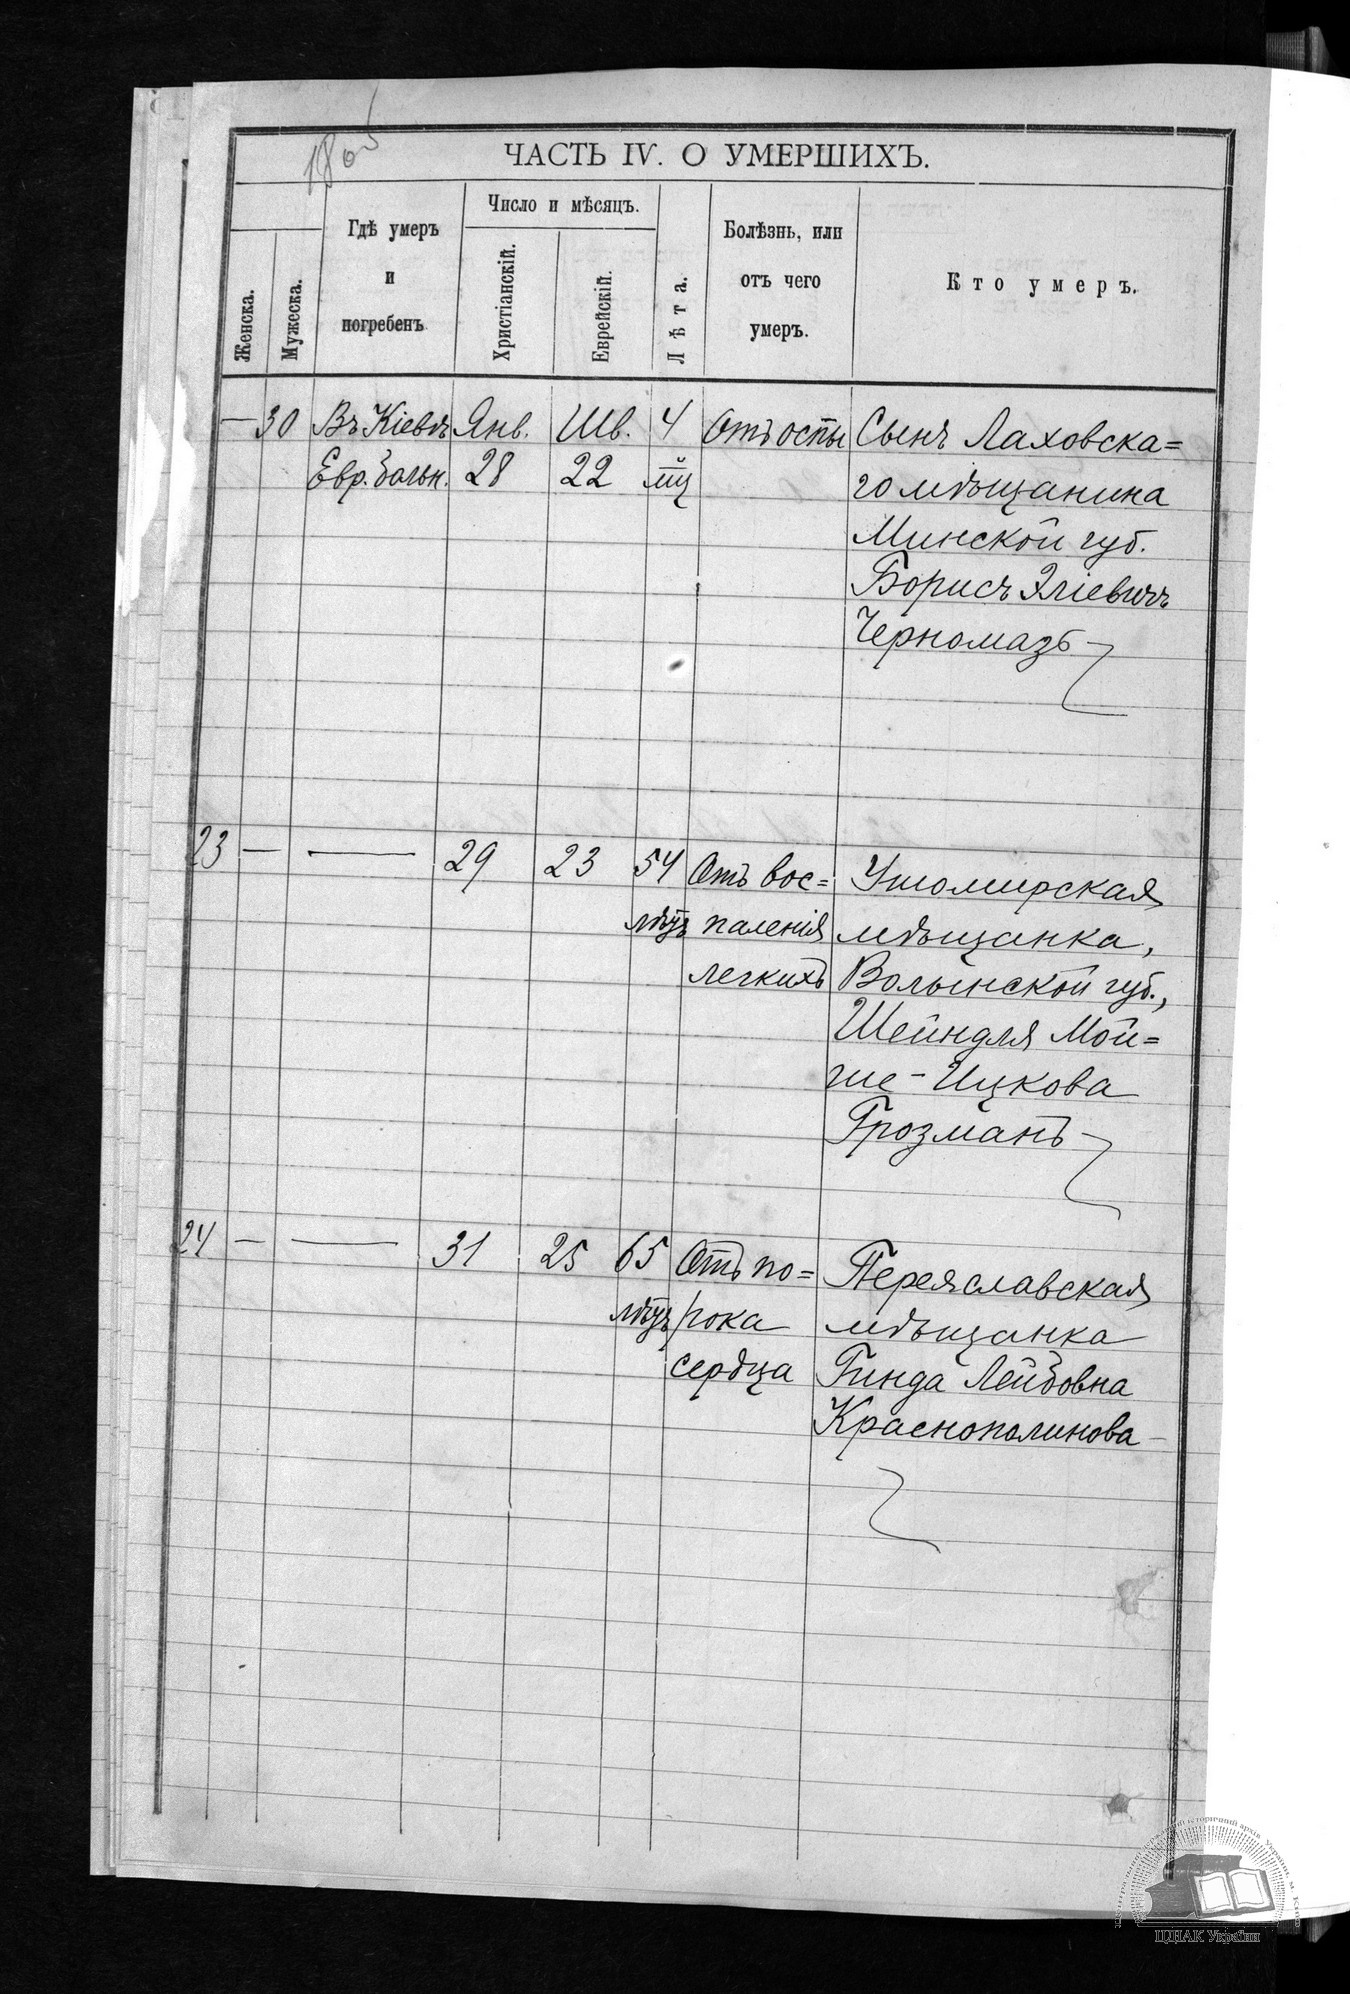 ЧАСТЬ IV. О УМЕРШИХЪ.
Женска.
Мужеска.
Гдѣ умеръ
и
погребенъ
Число и мѣсяцъ.
Христіанскій.
Еврейскій.
Лѣта.
Болѣзнь, или
отъ чего
умеръ.
Кто умеръ.
— 30 Въ Кіевѣ Янв. Шв. 4 Отъ оспы Сынъ Лаховска=
Евр. больн. 28 22 мц го мѣщанина
Минской губ.
Борисъ Эліевичъ
Черномазъ
23 — — 29 23 54 Отъ вос= Ушомирская
лѣтъ паленія мѣщанка,
легкихъ Волынской губ.,
Шейндля Мой=
ше-Ицкова
Грозманъ
24 — — 31 25 65 Отъ по= Переяславская
лѣтъ рока мѣщанка
сердца Гинда Лейбовна
Краснополинова
ЦДІАК України